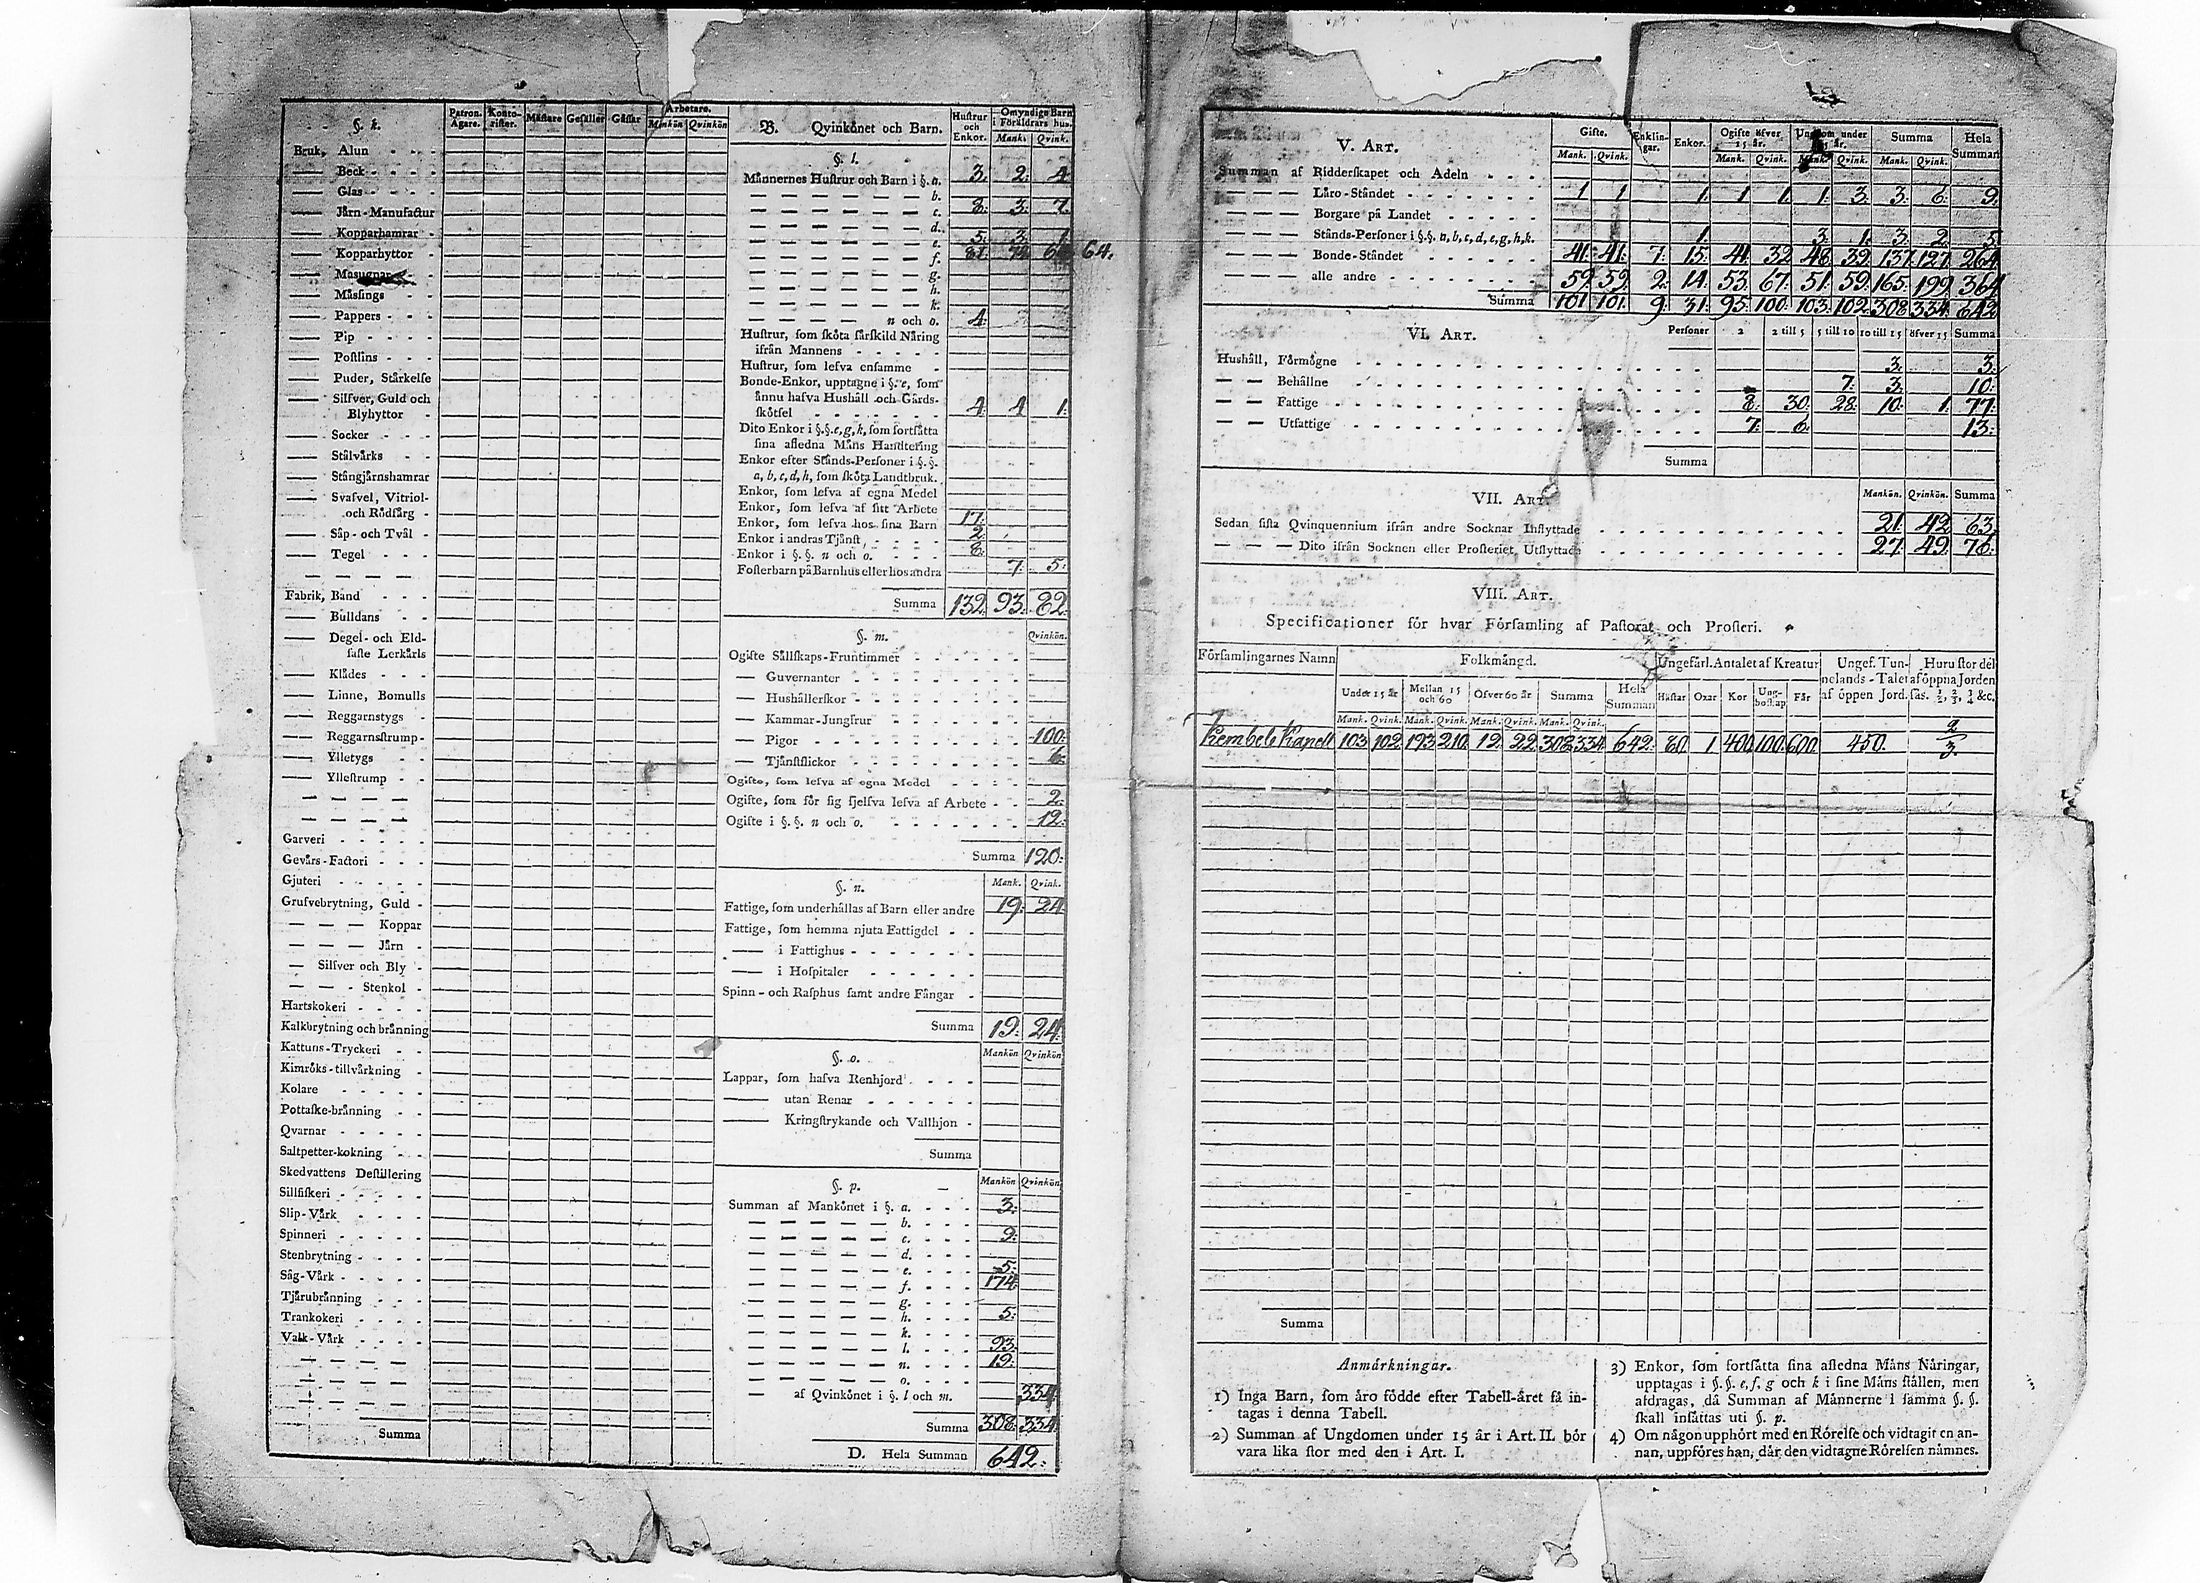 §. k. Patron. Ägare. Konto-rister. Mästare Gesäller Gåssar Arbetare. Mankön Qvinkön
Bruk, Alun
— Beck
— Glas
— Järn-Manufactur
— Kopparhamrar
— Kopparhyttor
— Masugnar
— Mässings
— Pappers
— Pip
— Postlins
— Puder, Stärkelse
— Silfver, Guld och
Blyhyttor
— Socker
— Stålvärks
— Stångjärnshamrar
— Svafvel, Vitriol-
och Rödfärg
— Såp- och Tvål
— Tegel
— — — — —
Fabrik, Band
— Bulldans
— Degel- och Eld-
faste Lerkärls
— Klädes
— Linne, Bomulls
— Reggarnstygs
— Reggarnsstrump
— Ylletygs
— Yllestrump
— — — —
— — — —
Garveri
Gevärs-Factori
Gjuteri
Grufvebrytning, Guld
— — — Koppar
— — — Järn
— Silfver och Bly
— — — Stenkol
Hartskokeri
Kalkbrytning och bränning
Kattuns-Tryckeri
Kimröks-tillvärkning
Kolare
Pottaske-bränning
Qvarnar
Saltpetter-kokning
Skedvattens Destillering
Sillfiskeri
Slip-Värk
Spinneri
Stenbrytning
Såg-Värk
Tjärubränning
Trankokeri
Valk-Värk
— — — —
— — — —
— — — —
Summa
B. Qvinkönet och Barn. Hustrur och Enkor. Omyndige Barn i Föräldrars hus. Mank. Qvink.
§. l.
Männernes Hustrur och Barn i §. a. 3. 2. 4
— — — — — — b.
— — — — — — c. 8: 3: 7.
— — — — — — d.
— — — — — — e. 5. 3. 1.
— — — — — — f. 81. 74. 64.
— — — — — — g.
— — — — — — h.
— — — — — — k.
— — — — — n och o. 4:
Hustrur, som sköta särskild Näring
ifrån Mannens
Hustrur, som lefva ensamme
Bonde-Enkor, upptagne i §. e, som
ännu hafva Hushåll och Gårds-
skötsel 4. 4 1:
Dito Enkor i §.§. e, g, k, som fortsätta
sina afledna Mäns Handtering
Enkor efter Stånds-Personer i §.§.
a, b, c, d, h, som sköta Landtbruk.
Enkor, som lefva af egna Medel
Enkor, som lefva af sitt Arbete
Enkor, som lefva hos sina Barn 17:
Enkor i andras Tjänst 2:
Enkor i §. §. n och o. 8:
Fosterbarn på Barnhus eller hos andra 7. 5:
Summa 132. 93: 82:
§. m. Qvinkön.
Ogifte Sällskaps-Fruntimmer
— Guvernanter
— Hushållerskor
— Kammar-Jungfrur
— Pigor 100:
— Tjänstflickor 6:
Ogifte, som lefva af egna Medel
Ogifte, som för sig sjelfva lefva af Arbete 2:
Ogifte i §. §. n och o. 12:
Summa 120:
§. n. Mank. Qvink.
Fattige, som underhållas af Barn eller andre 19: 24:
Fattige, som hemma njuta Fattigdel
— i Fattighus
— i Hospitaler
Spinn- och Rasphus samt andre Fångar
Summa 19: 24:
§. o. Mankön Qvinkön
Lappar, som hafva Renhjord
— utan Renar
— Kringstrykande och Vallhjon
Summa
§. p. Mankön Qvinkön
Summan af Mankönet i §. a. 3:
— — — — — b.
— — — — — c. 9:
— — — — — d.
— — — — — e. 5:
— — — — — f. 174
— — — — — g.
— — — — — h. 5:
— — — — — k.
— — — — — l. 93:
— — — — — n. 19:
— — — — — o.
— af Qvinkönet i §. l och m. 334
Summa 308: 334.
D. Hela Summan 642:
V. Art. Gifte. Mank. Qvink. Enklingar. Enkor. Ogifte öfver 15 år. Mank. Qvink. Ungdom under 15 år. Mank. Qvink. Summa Mank. Qvink. Hela Summan
Summan af Ridderskapet och Adeln
— — — Läro-Ståndet 1 1 1: 1 1. 1: 3. 3: 6: 9.
— — — Borgare på Landet
— — — Stånds-Personer i §.§. a, b, c, d, e, g, h, k. 1. 3. 1. 3. 2. 5.
— — — Bonde-Ståndet 41: 41: 7: 15: 41: 32 48: 39. 137. 127. 264
— — — alle andre 59. 59. 2: 14. 53. 67. 51. 59. 165. 199. 364
Summa 101 101. 9. 31: 95. 100: 103: 102. 308. 334. 642
VI. Art. Personer 2 2 till 5 5 till 10 10 till 15 öfver 15 Summa
Hushåll, Förmögne 3: 3.
— — Behållne 7: 3. 10:
— — Fattige 8: 30. 28: 10: 1: 77:
— — Utfattige 7: 6: 13:
Summa
VII. Art. Mankön. Qvinkön. Summa
Sedan sista Qvinquennium ifrån andre Socknar Inflyttade 21: 42 63.
— — — Dito ifrån Socknen eller Prosteriet, Utflyttade 27. 49. 76:
VIII. Art.
Specificationer för hvar Församling af Pastorat och Prosteri.
Församlingarnes Namn Folkmängd. Ungefärl. Antalet af Kreatur Ungef. Tunnelands-Tal af öppen Jord. Huru stor del af öppna Jorden sås. ½, ⅔, ¾ &c.
Under 15 år Mellan 15 och 60 Öfver 60 år Summa Hela Summan Hästar Oxar Kor Ungboskap Får
Mank. Qvink. Mank. Qvink. Mank. Qvink. Mank. Qvink.
Kembele Kapell 103. 102. 193. 210. 12. 22. 308. 334. 642: 80. 1 400. 100. 600. 450. 2/3.
Summa
Anmärkningar.
1) Inga Barn, som äro födde efter Tabell-året få in-
tagas i denna Tabell.
2) Summan af Ungdomen under 15 år i Art. II. bör
vara lika stor med den i Art. I.
3) Enkor, som fortsätta sina afledna Mäns Näringar,
upptagas i §.§. e, f, g och k i sine Mäns ställen, men
afdragas, då Summan af Männerne i samma §. §.
skall insättas uti §. p.
4) Om någon upphört med en Rörelse och vidtagit en an-
nan, uppföres han, där den vidtagne Rörelsen nämnes.